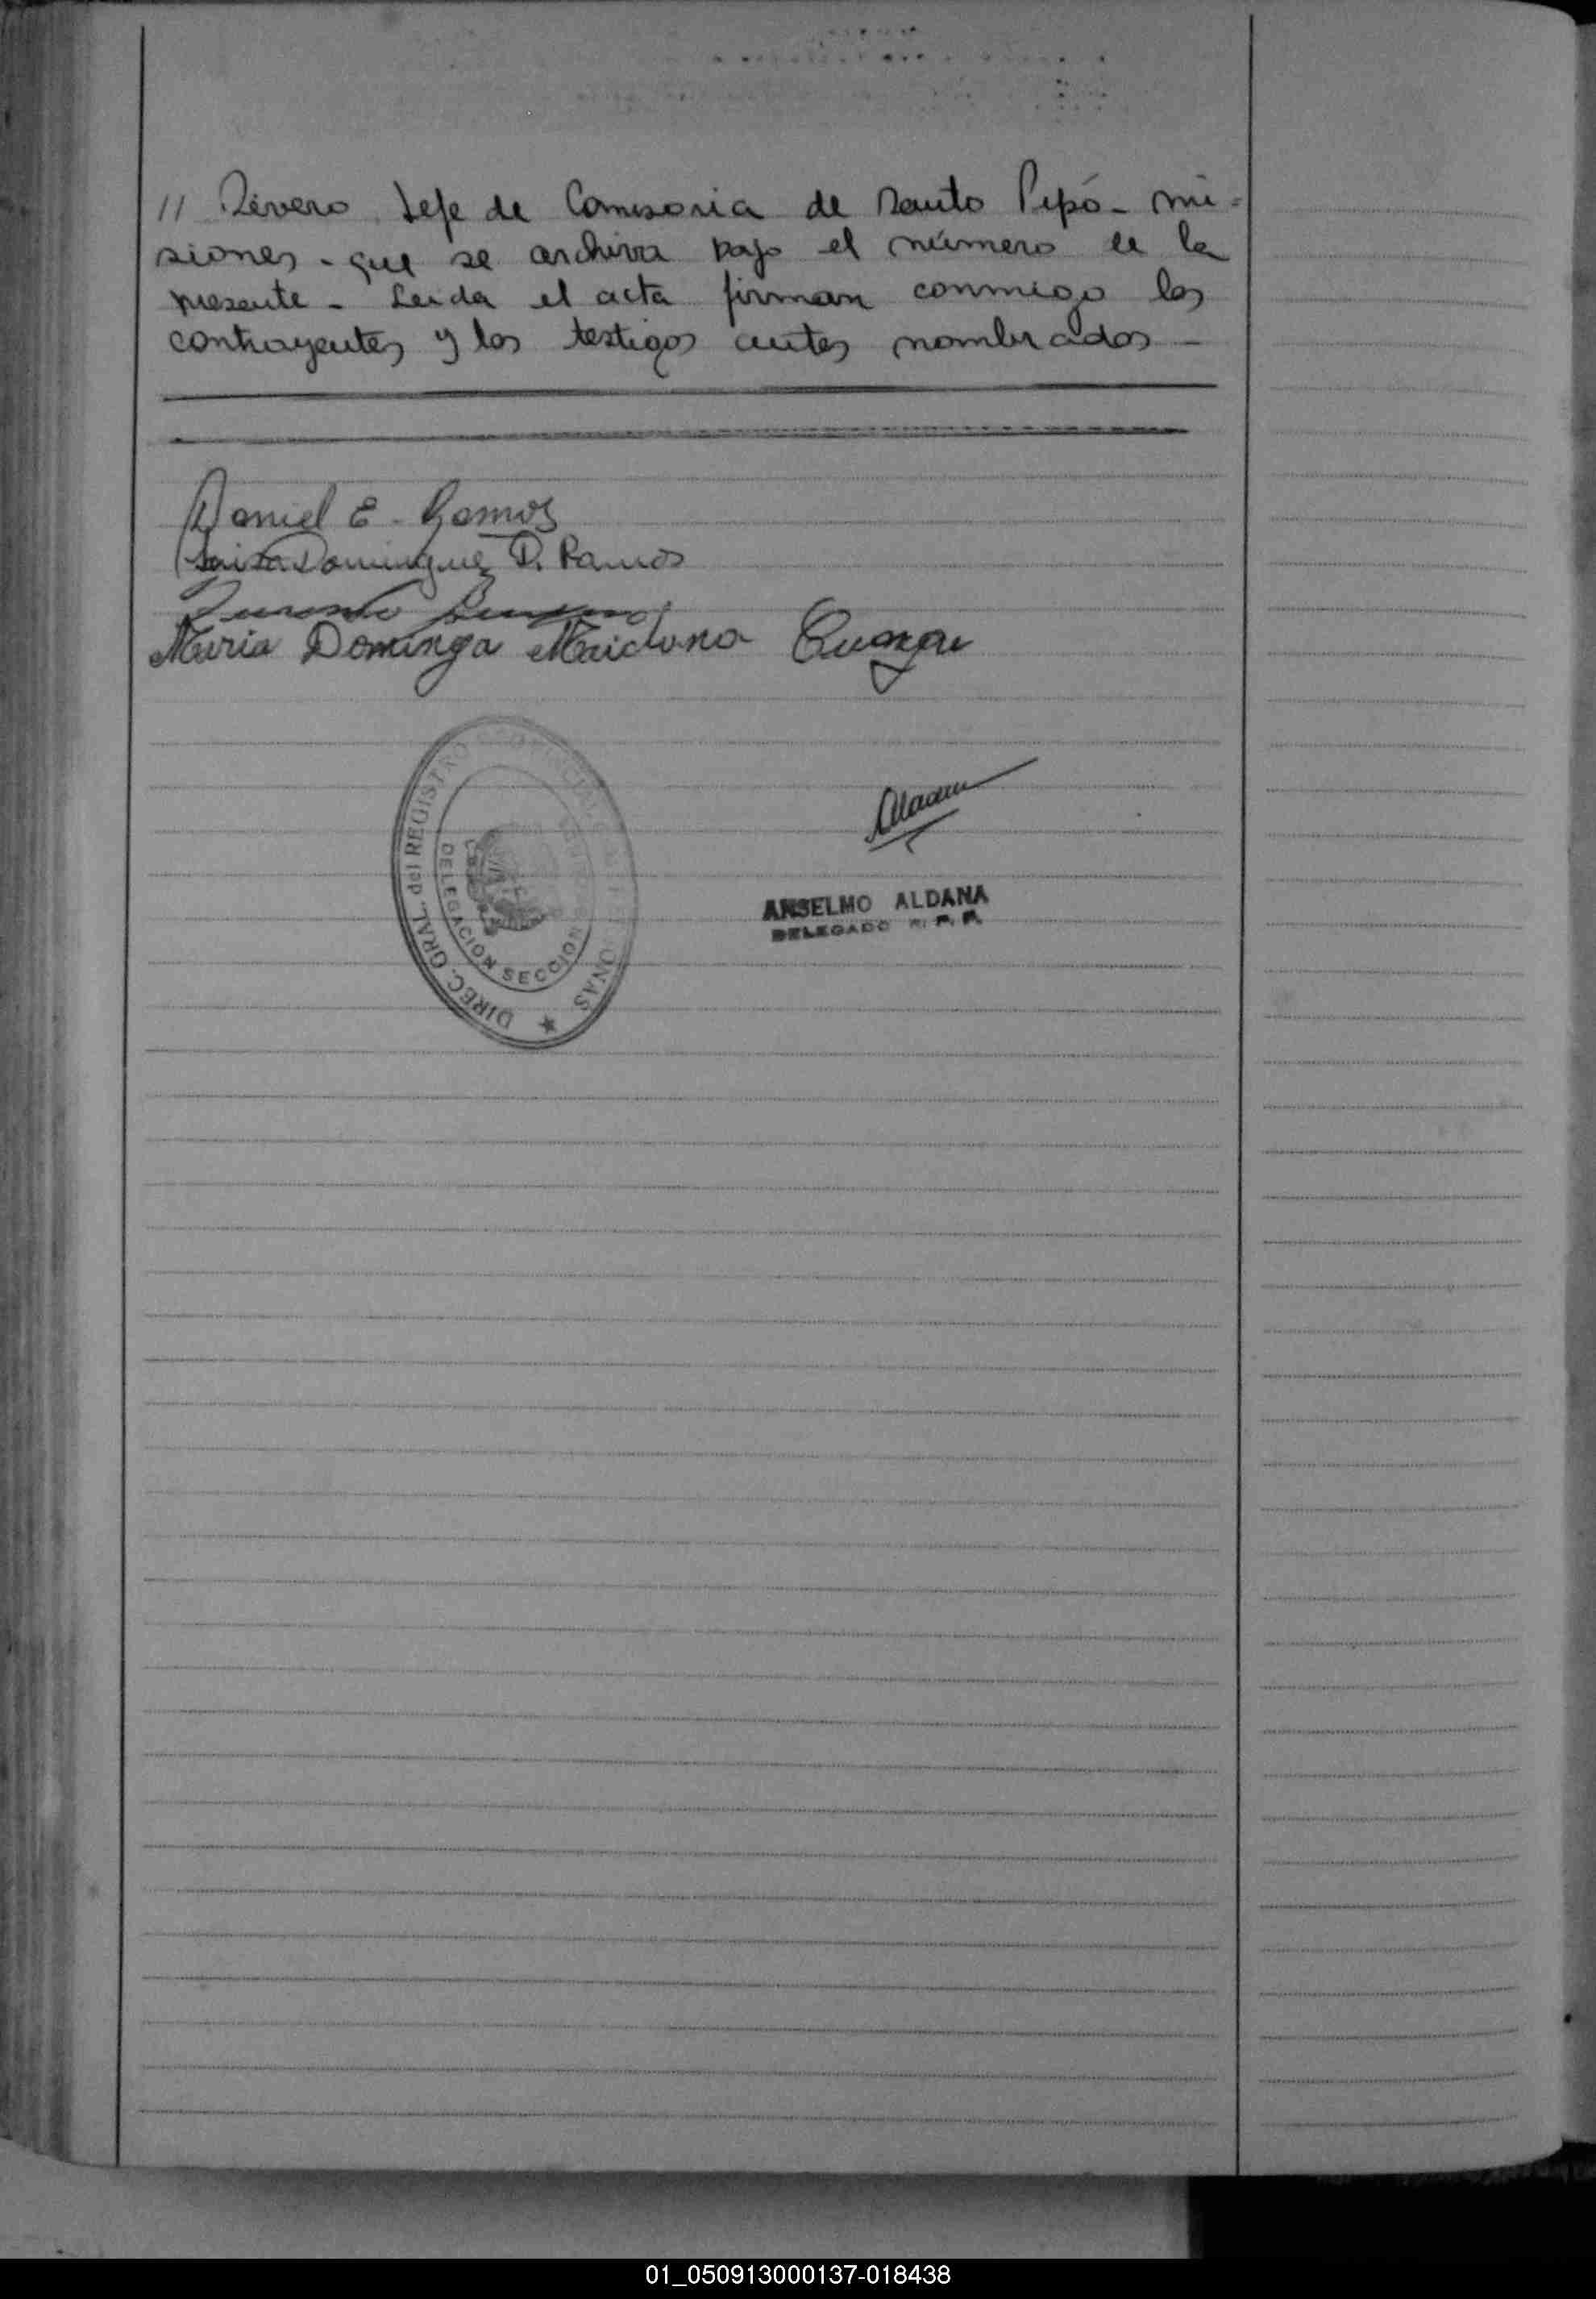 // Rivero Jefe de Comisaria de Santo Pipó - Mi=
siones - que se archiva bajo el número de la
presente - Leida el acta firman conmigo los
contrayentes y los testigos antes nombrados -
Daniel E. Ramos
Dominguez D. Ramos
Maria Dominga Maidana
DIREC. GRAL. del REGISTRO PROVINCIAL PERSONAS
DELEGACION SECCION
ANSELMO ALDANA
DELEGADO R. P. P.
01_050913000137-018438